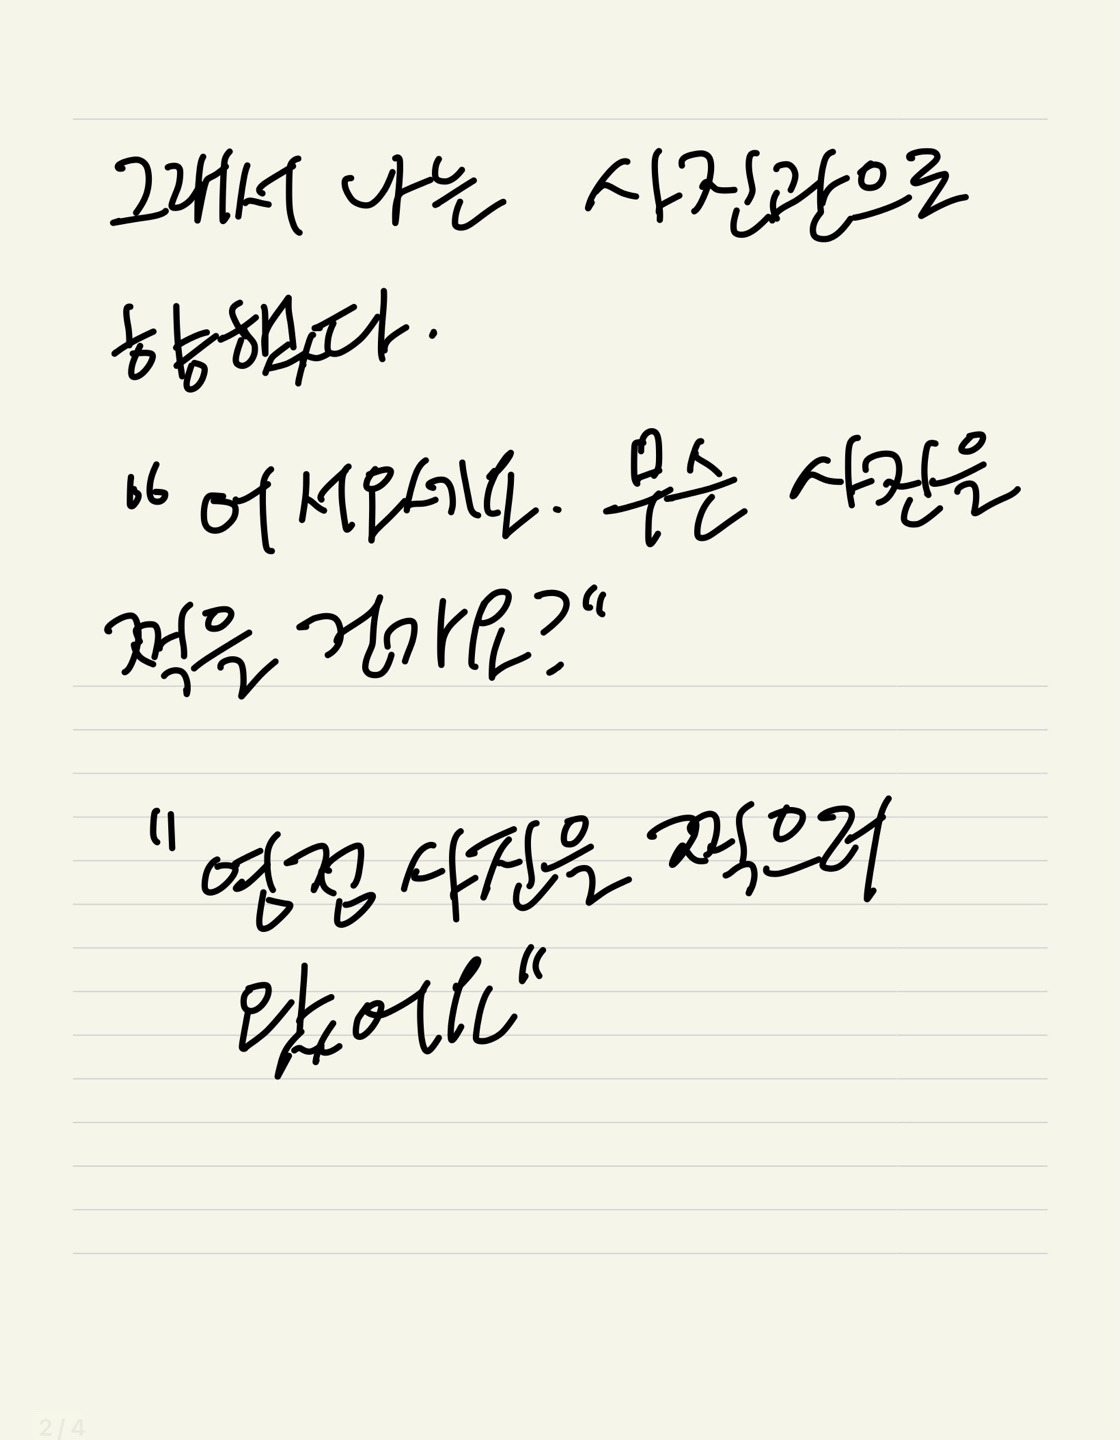 그래서 나는 사진관으로
향했다.
“어서오세요. 무슨 사진을
찍을 건가요?“
"영정 사진을 찍으러
왔어요“
2 / 4